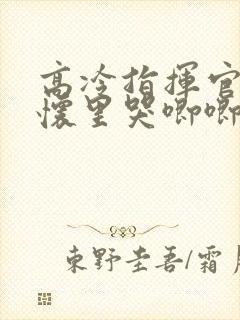 高冷指揮官
懷里哭唧唧
東野圭吾/霜月